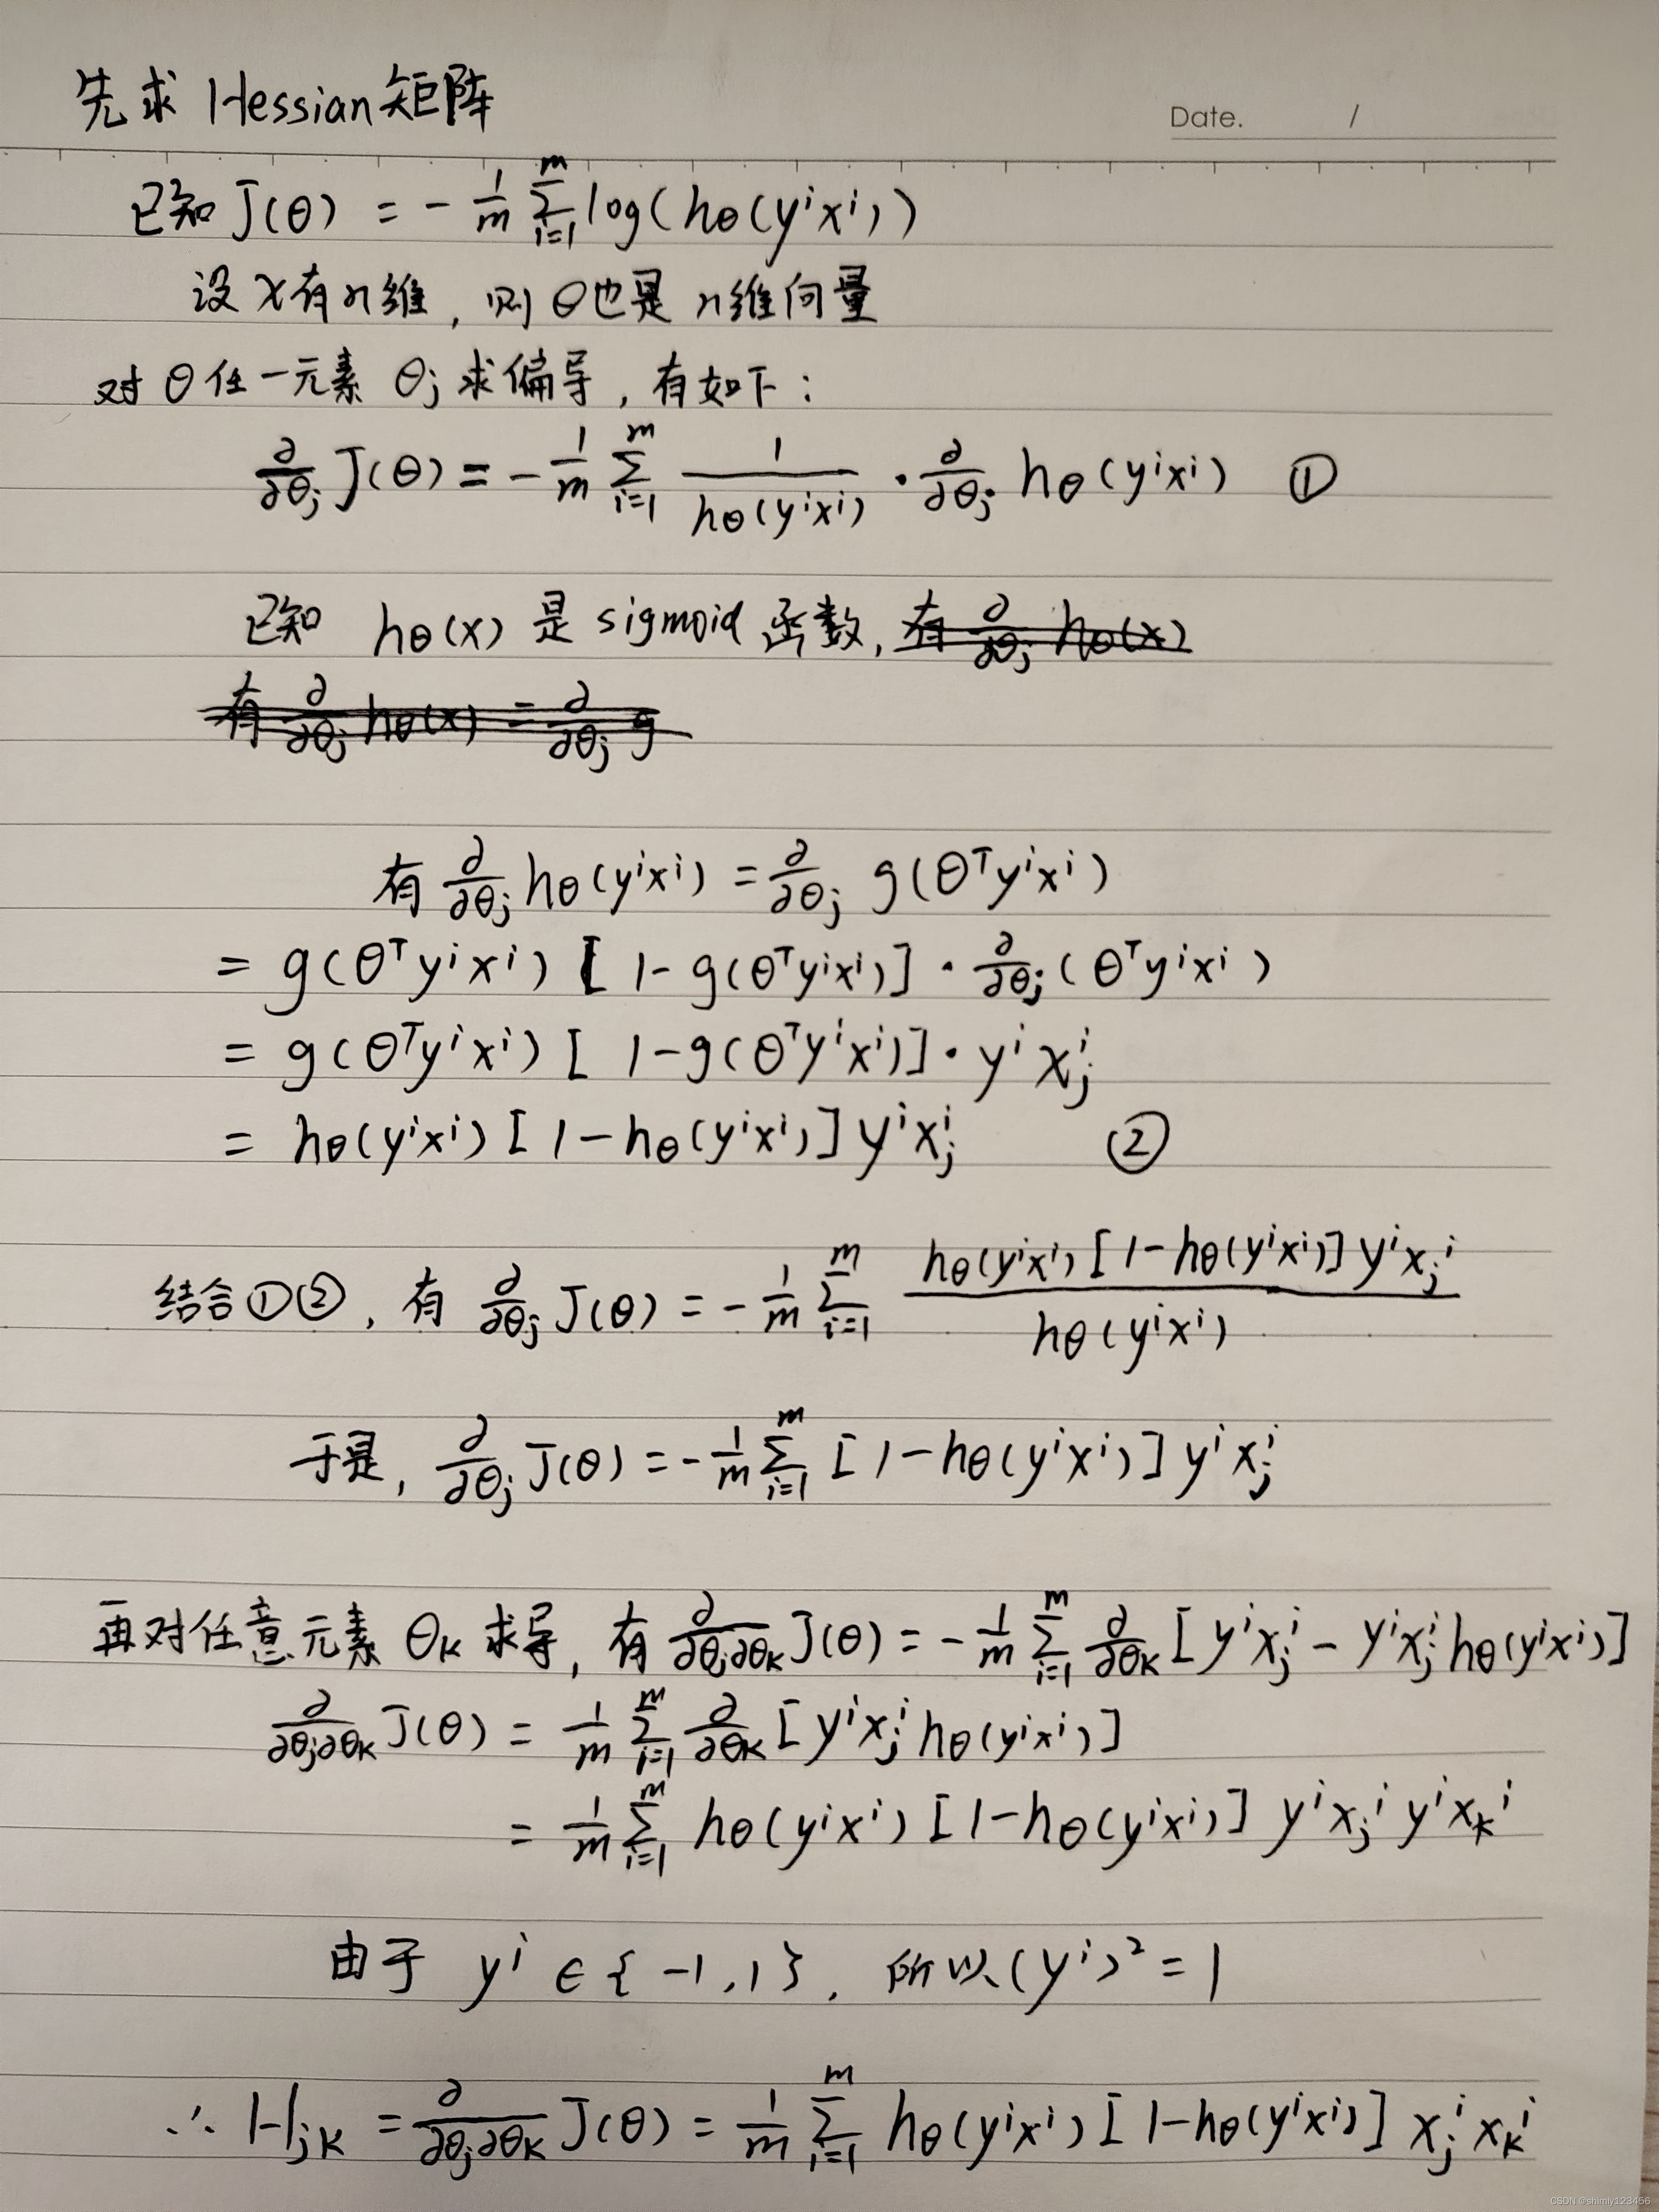 先求 Hessian矩阵
Date. /
已知 J(θ) = - 1/m ∑_{i=1}^{m} log(hθ(y^i x^i))
设 x有n维, 则 θ也是 n维向量
对 θ 任一元素 θj 求偏导, 有如下:
∂/∂θj J(θ) = - 1/m ∑_{i=1}^{m} 1/hθ(y^i x^i) · ∂/∂θj hθ(y^i x^i) ①
已知 hθ(x) 是 sigmoid 函数, 有 ∂/∂θj hθ(x)
有 ∂/∂θj hθ(x) = ∂/∂θj g
有 ∂/∂θj hθ(y^i x^i) = ∂/∂θj g(θ^T y^i x^i)
= g(θ^T y^i x^i) [ 1 - g(θ^T y^i x^i)] · ∂/∂θj (θ^T y^i x^i)
= g(θ^T y^i x^i) [ 1 - g(θ^T y^i x^i)] · y^i x_j^i
= hθ(y^i x^i) [ 1 - hθ(y^i x^i)] y^i x_j^i ②
结合①②, 有 ∂/∂θj J(θ) = - 1/m ∑_{i=1}^{m} hθ(y^i x^i) [1 - hθ(y^i x^i)] y^i x_j^i / hθ(y^i x^i)
于是, ∂/∂θj J(θ) = - 1/m ∑_{i=1}^{m} [ 1 - hθ(y^i x^i)] y^i x_j^i
再对任意元素 θk 求导, 有 ∂/∂θj∂θk J(θ) = - 1/m ∑_{i=1}^{m} ∂/∂θk [ y^i x_j^i - y^i x_j^i hθ(y^i x^i)]
∂/∂θj∂θk J(θ) = 1/m ∑_{i=1}^{m} ∂/∂θk [ y^i x_j^i hθ(y^i x^i)]
= 1/m ∑_{i=1}^{m} hθ(y^i x^i) [1 - hθ(y^i x^i)] y^i x_j^i y^i x_k^i
由于 y^i ∈ { -1, 1 }, 所以 (y^i)^2 = 1
∴ Hjk = ∂/∂θj∂θk J(θ) = 1/m ∑_{i=1}^{m} hθ(y^i x^i) [ 1 - hθ(y^i x^i)] x_j^i x_k^i
CSDN @shimly123456